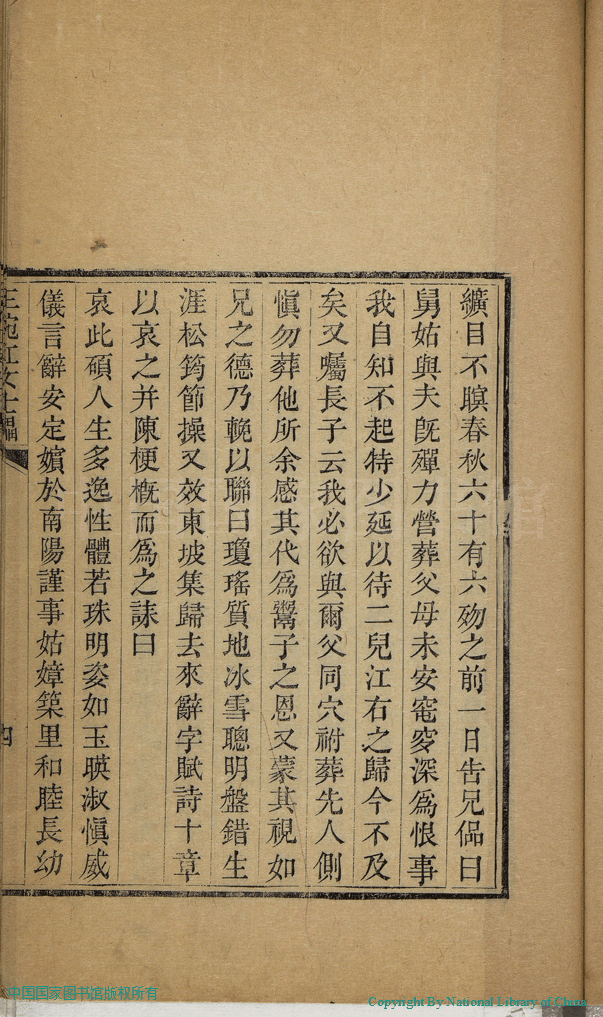 纊目不瞑春秋六十有六歾之前一日告兄偘曰
舅姑與夫旣殫力營葬父母未安窀穸深爲恨事
我自知不起特少延以待二兒江右之歸今不及
矣又囑長子云我必欲與爾父同穴祔葬先人側
愼勿葬他所余感其代爲鬻子之恩又蒙其視如
兄之德乃輓以聯曰瓊瑤質地冰雪聰明盤錯生
涯松筠節操又效東坡集歸去來辭字賦詩十章
以哀之并陳梗槪而爲之誄曰
哀此碩人生多逸性體若珠明姿如玉暎淑愼威
儀言辭安定嬪於南陽謹事姑嫜築里和睦長幼
四
中国国家图书馆版权所有
Copyright By National Library of China